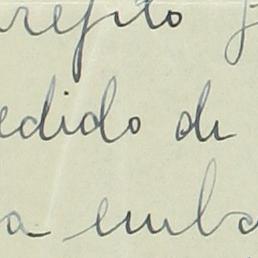 refito
edido de
a emba